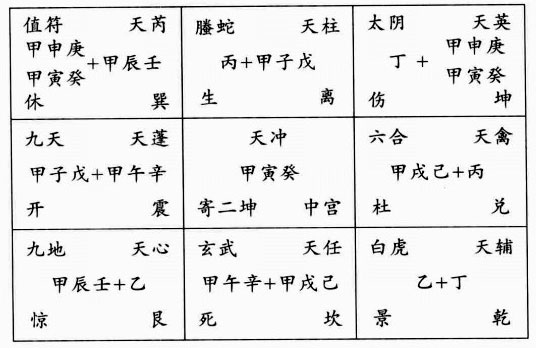 值符 天芮
甲申庚
甲寅癸
+甲辰壬
休 巽
螣蛇 天柱
丙+甲子戊
生 离
太阴 天英
丁+
甲申庚
甲寅癸
伤 坤
九天 天蓬
甲子戊+甲午辛
开 震
天冲
甲寅癸
寄二坤 中宫
六合 天禽
甲戌己+丙
杜 兑
九地 天心
甲辰壬+乙
惊 艮
玄武 天任
甲午辛+甲戌己
死 坎
白虎 天辅
乙+丁
景 乾